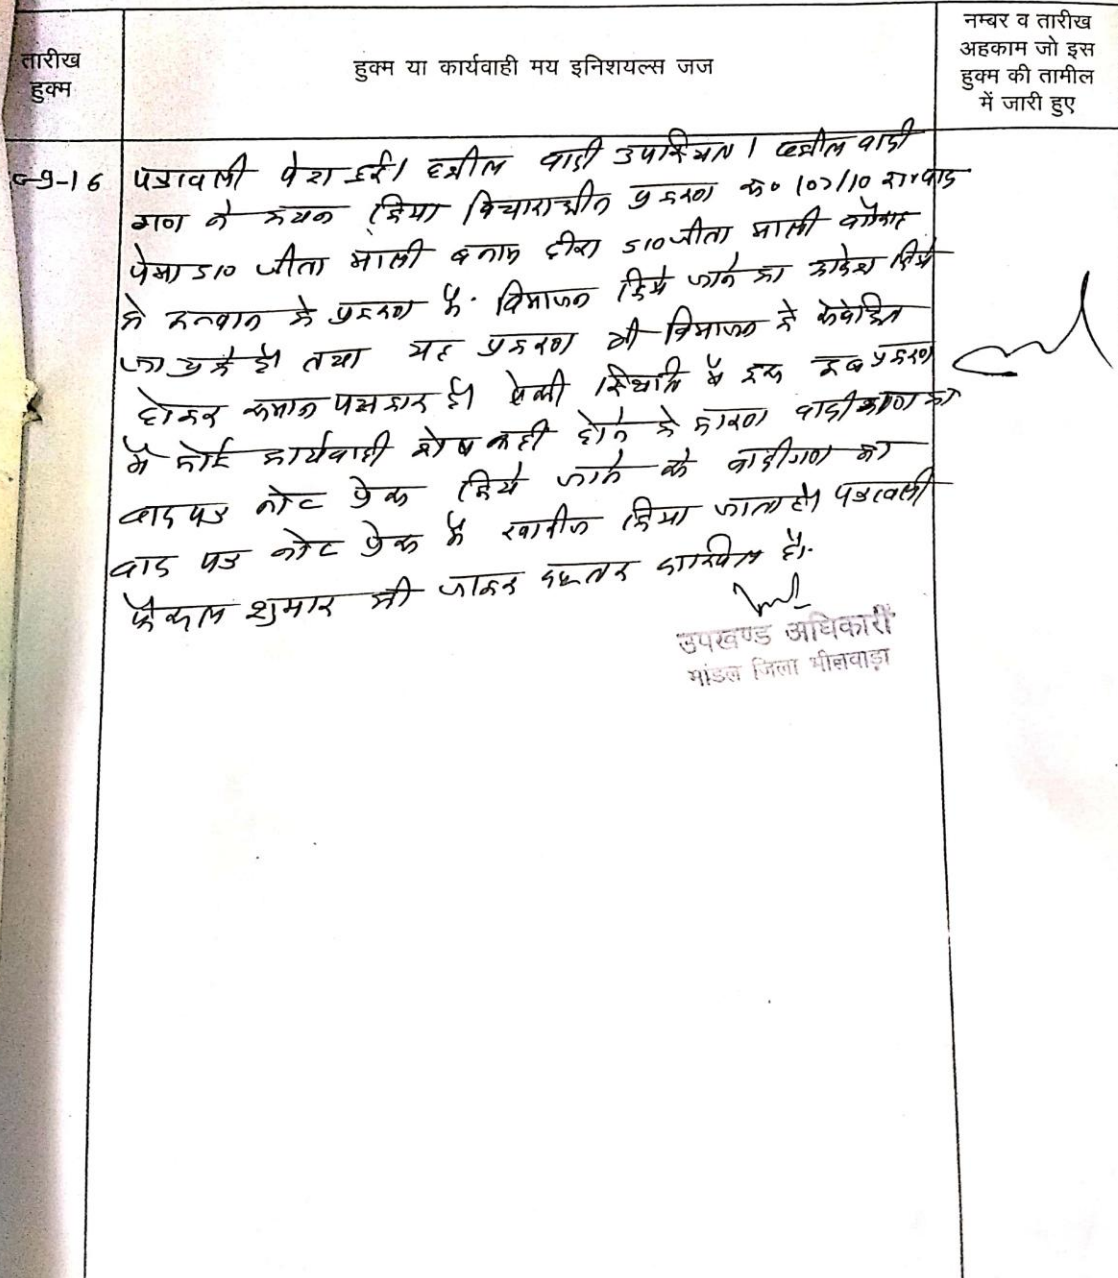 तारीख
हुक्म
हुक्म या कार्यवाही मय इनिशयल्स जज
नम्बर व तारीख
अहकाम जो इस
हुक्म की तामील
में जारी हुए
9-16 पत्रावली पेश हुई। वकील वादी उपस्थित। वकील वादी
गण ने कथन किया विचाराधीन प्रकरण 107/10
पेमा S/O जीता माली बनाम हीरा S/O जीता माली वगैराह
के उनवान के प्रकरण में विभाजन किये जाने का आदेश दिये
जा चुके है। तथा यह प्रकरण भी विभाजन से संबंधित
होकर समान पक्षकार है। ऐसी स्थिति में अब इस प्रकरण
में कोई कार्यवाही शेष नही होने के कारण वादीगण का
वाद पत्र नोट प्रेस किये जाने से वादीगण का
वाद पत्र नोट प्रेस में खारीज किया जाता है। पत्रावली
फैसल शुमार की जाकर दफ्तर दाखिल है।
उपखण्ड अधिकारी
मांडल जिला भीलवाड़ा